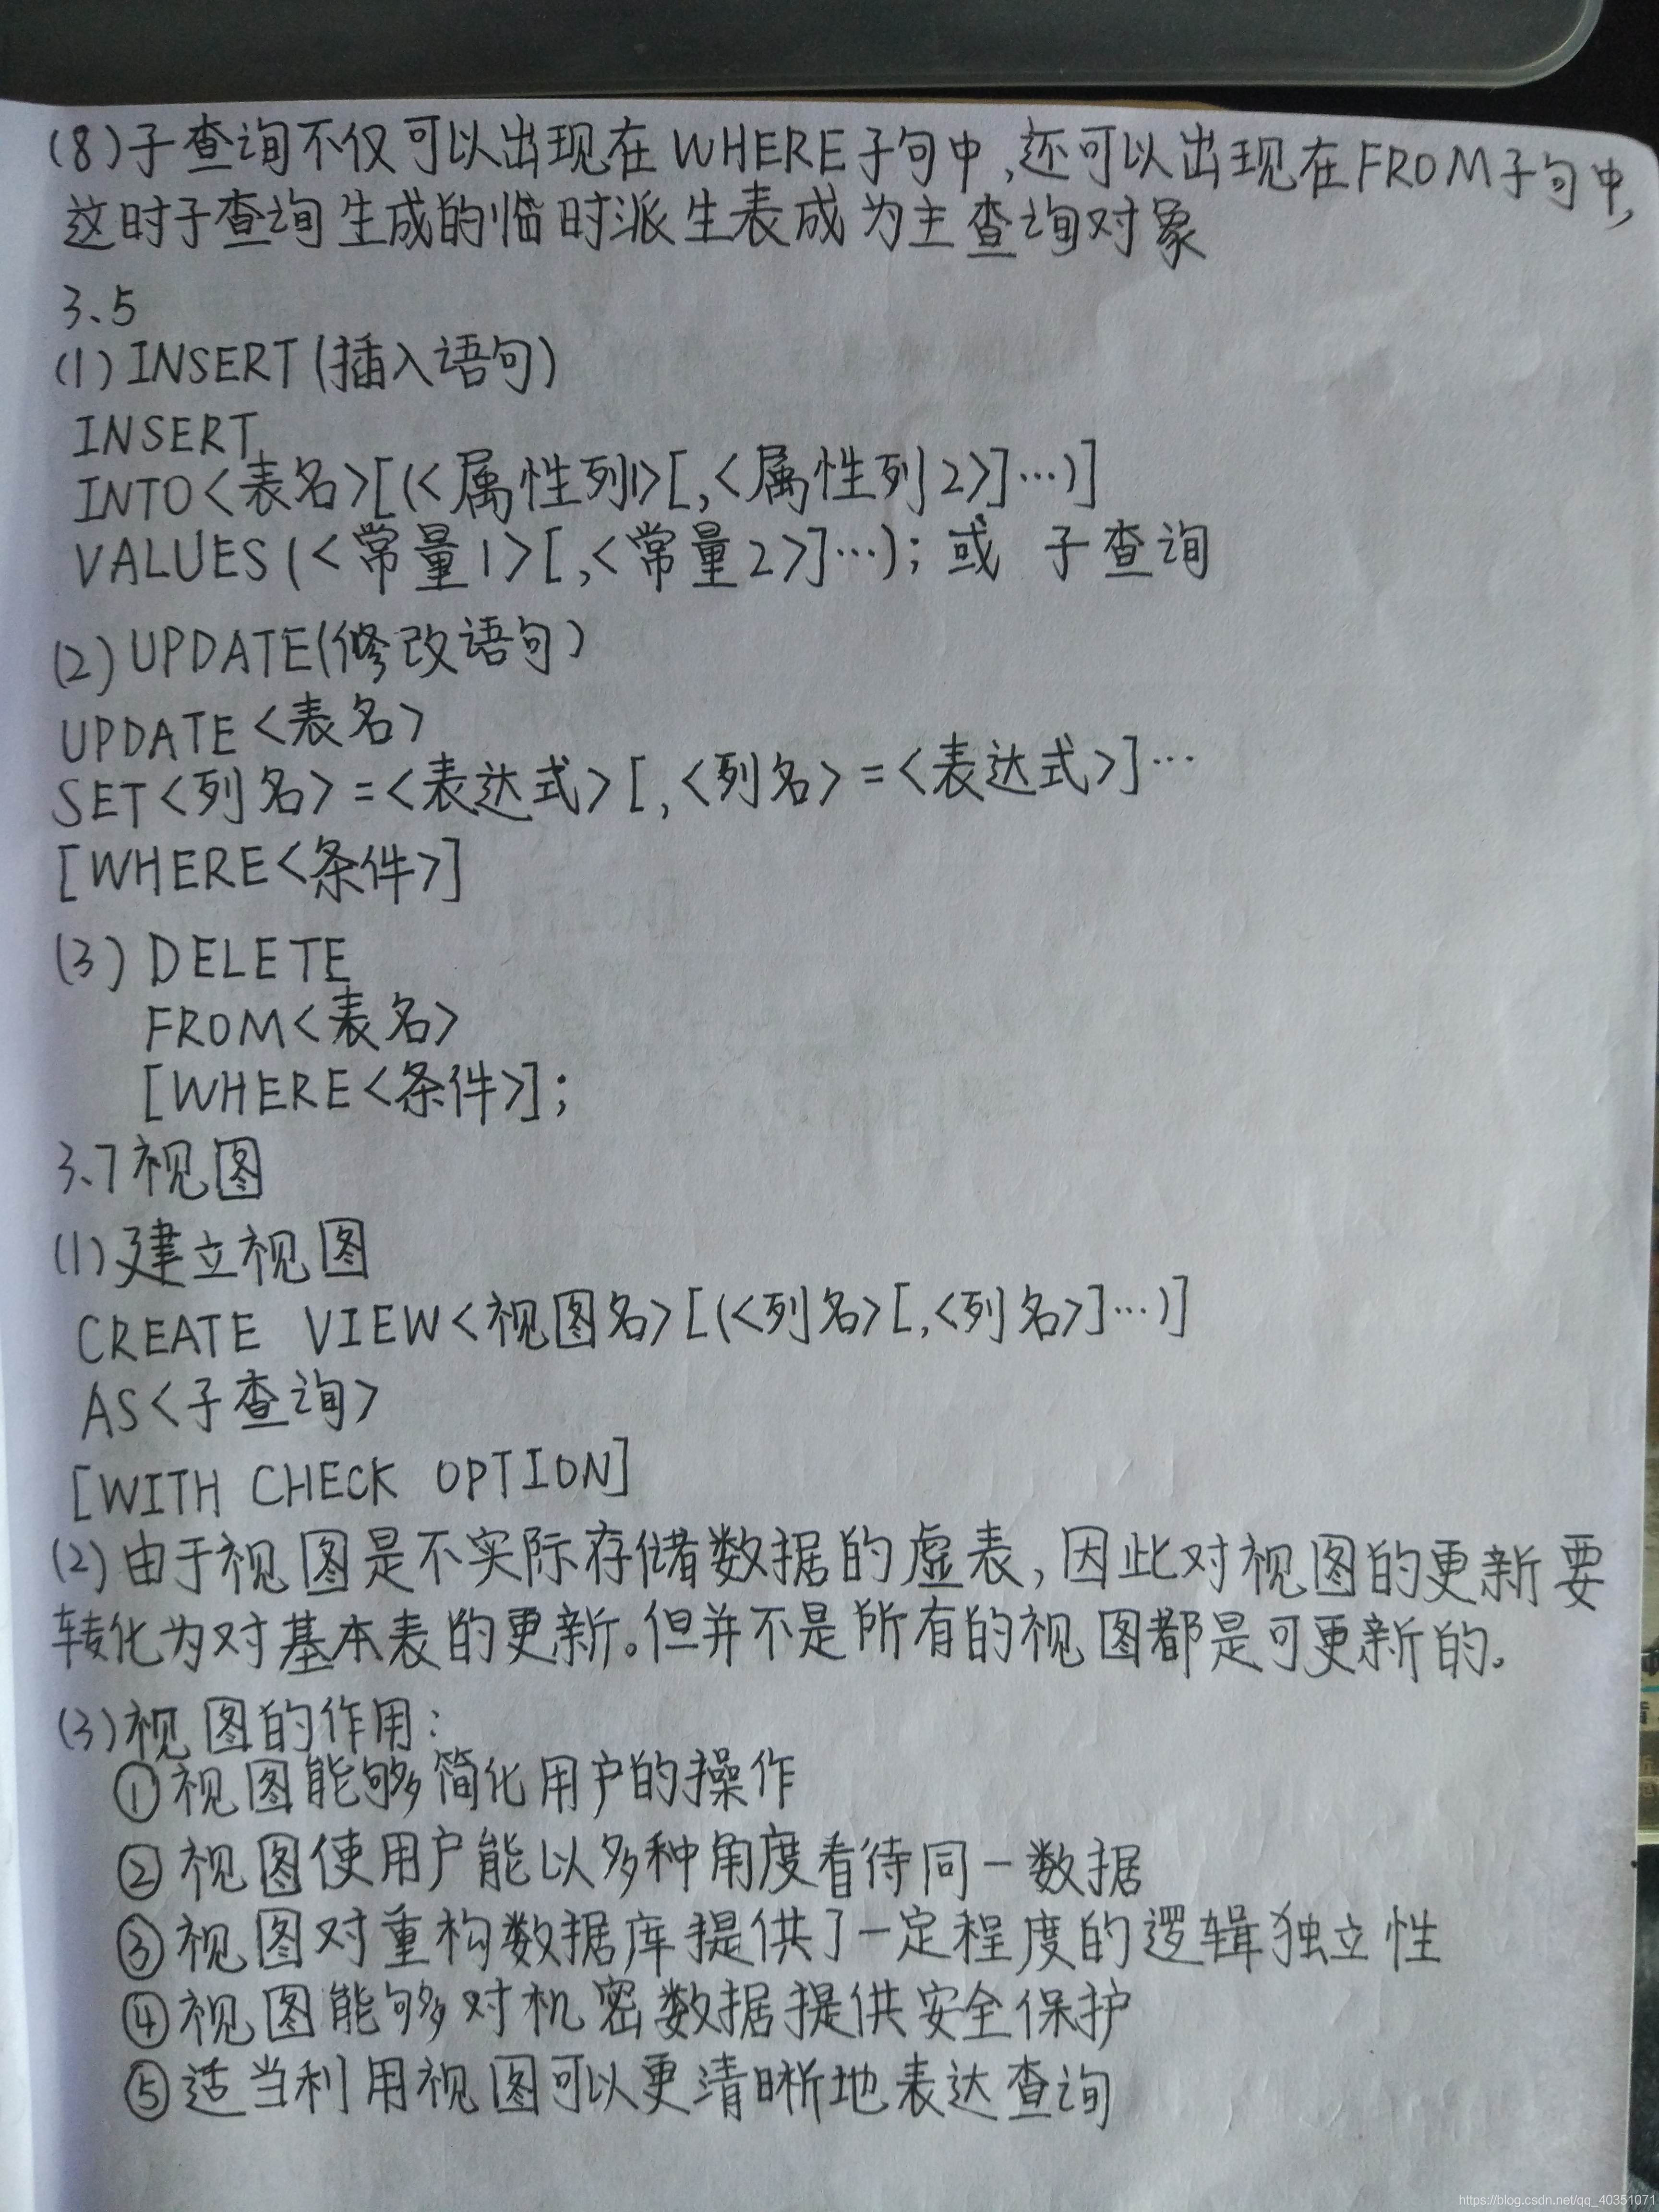 (8)子查询不仅可以出现在WHERE子句中,还可以出现在FROM子句中,
这时子查询生成的临时派生表成为主查询对象
3、5
(1)INSERT(插入语句)
INSERT
INTO<表名>[(<属性列1>[,<属性列2>]…)]
VALUES(<常量1>[,<常量2>]…);或 子查询
(2)UPDATE(修改语句)
UPDATE<表名>
SET<列名>=<表达式>[,<列名>=<表达式>]…
[WHERE<条件>]
(3) DELETE
FROM<表名>
[WHERE<条件>];
3、7视图
(1)建立视图
CREATE VIEW<视图名>[(<列名>[,<列名>]…)]
AS<子查询>
[WITH CHECK OPTION]
(2)由于视图是不实际存储数据的虚表,因此对视图的更新要
转化为对基本表的更新。但并不是所有的视图都是可更新的。
(3)视图的作用:
①视图能够简化用户的操作
②视图使用户能以多种角度看待同一数据
③视图对重构数据库提供了一定程度的逻辑独立性
④视图能够对机密数据提供安全保护
⑤适当利用视图可以更清晰地表达查询
https://blog.csdn.net/qq_40351071